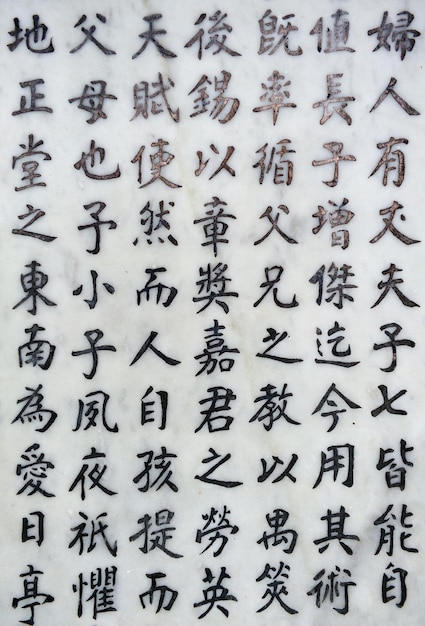 婦人有丈夫子七皆能自
值長子增傑迄今用其術
既率循父兄之教以禺筴
後錫以章獎嘉君之勞英
天賦使然而人自孩提而
父母也子小子夙夜祇懼
地正堂之東南為愛日亭